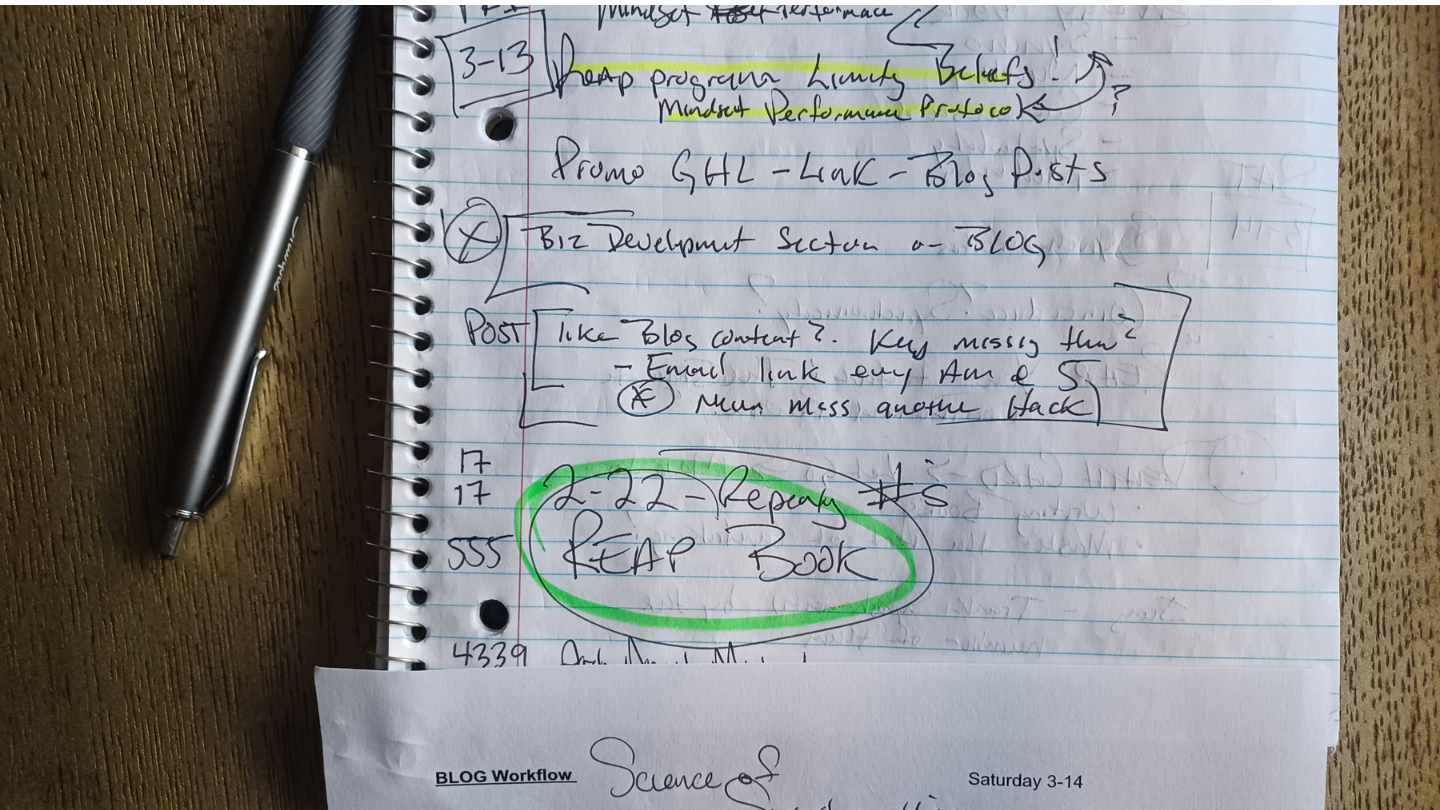 Mindset Performace
3-13 Reap program Limity Beliefs!
Mindset Performance Protocol ?
Promo GHL - Link - Blog Posts
X Biz Development Section on BLOG
POST like Blog content?. Key missing this?
- Email link every Am @ 5
* Never miss another Hack
17
17 2-22 - Repeaty #s
555 REAP Book
4339
BLOG Workflow Science of Saturday 3-14